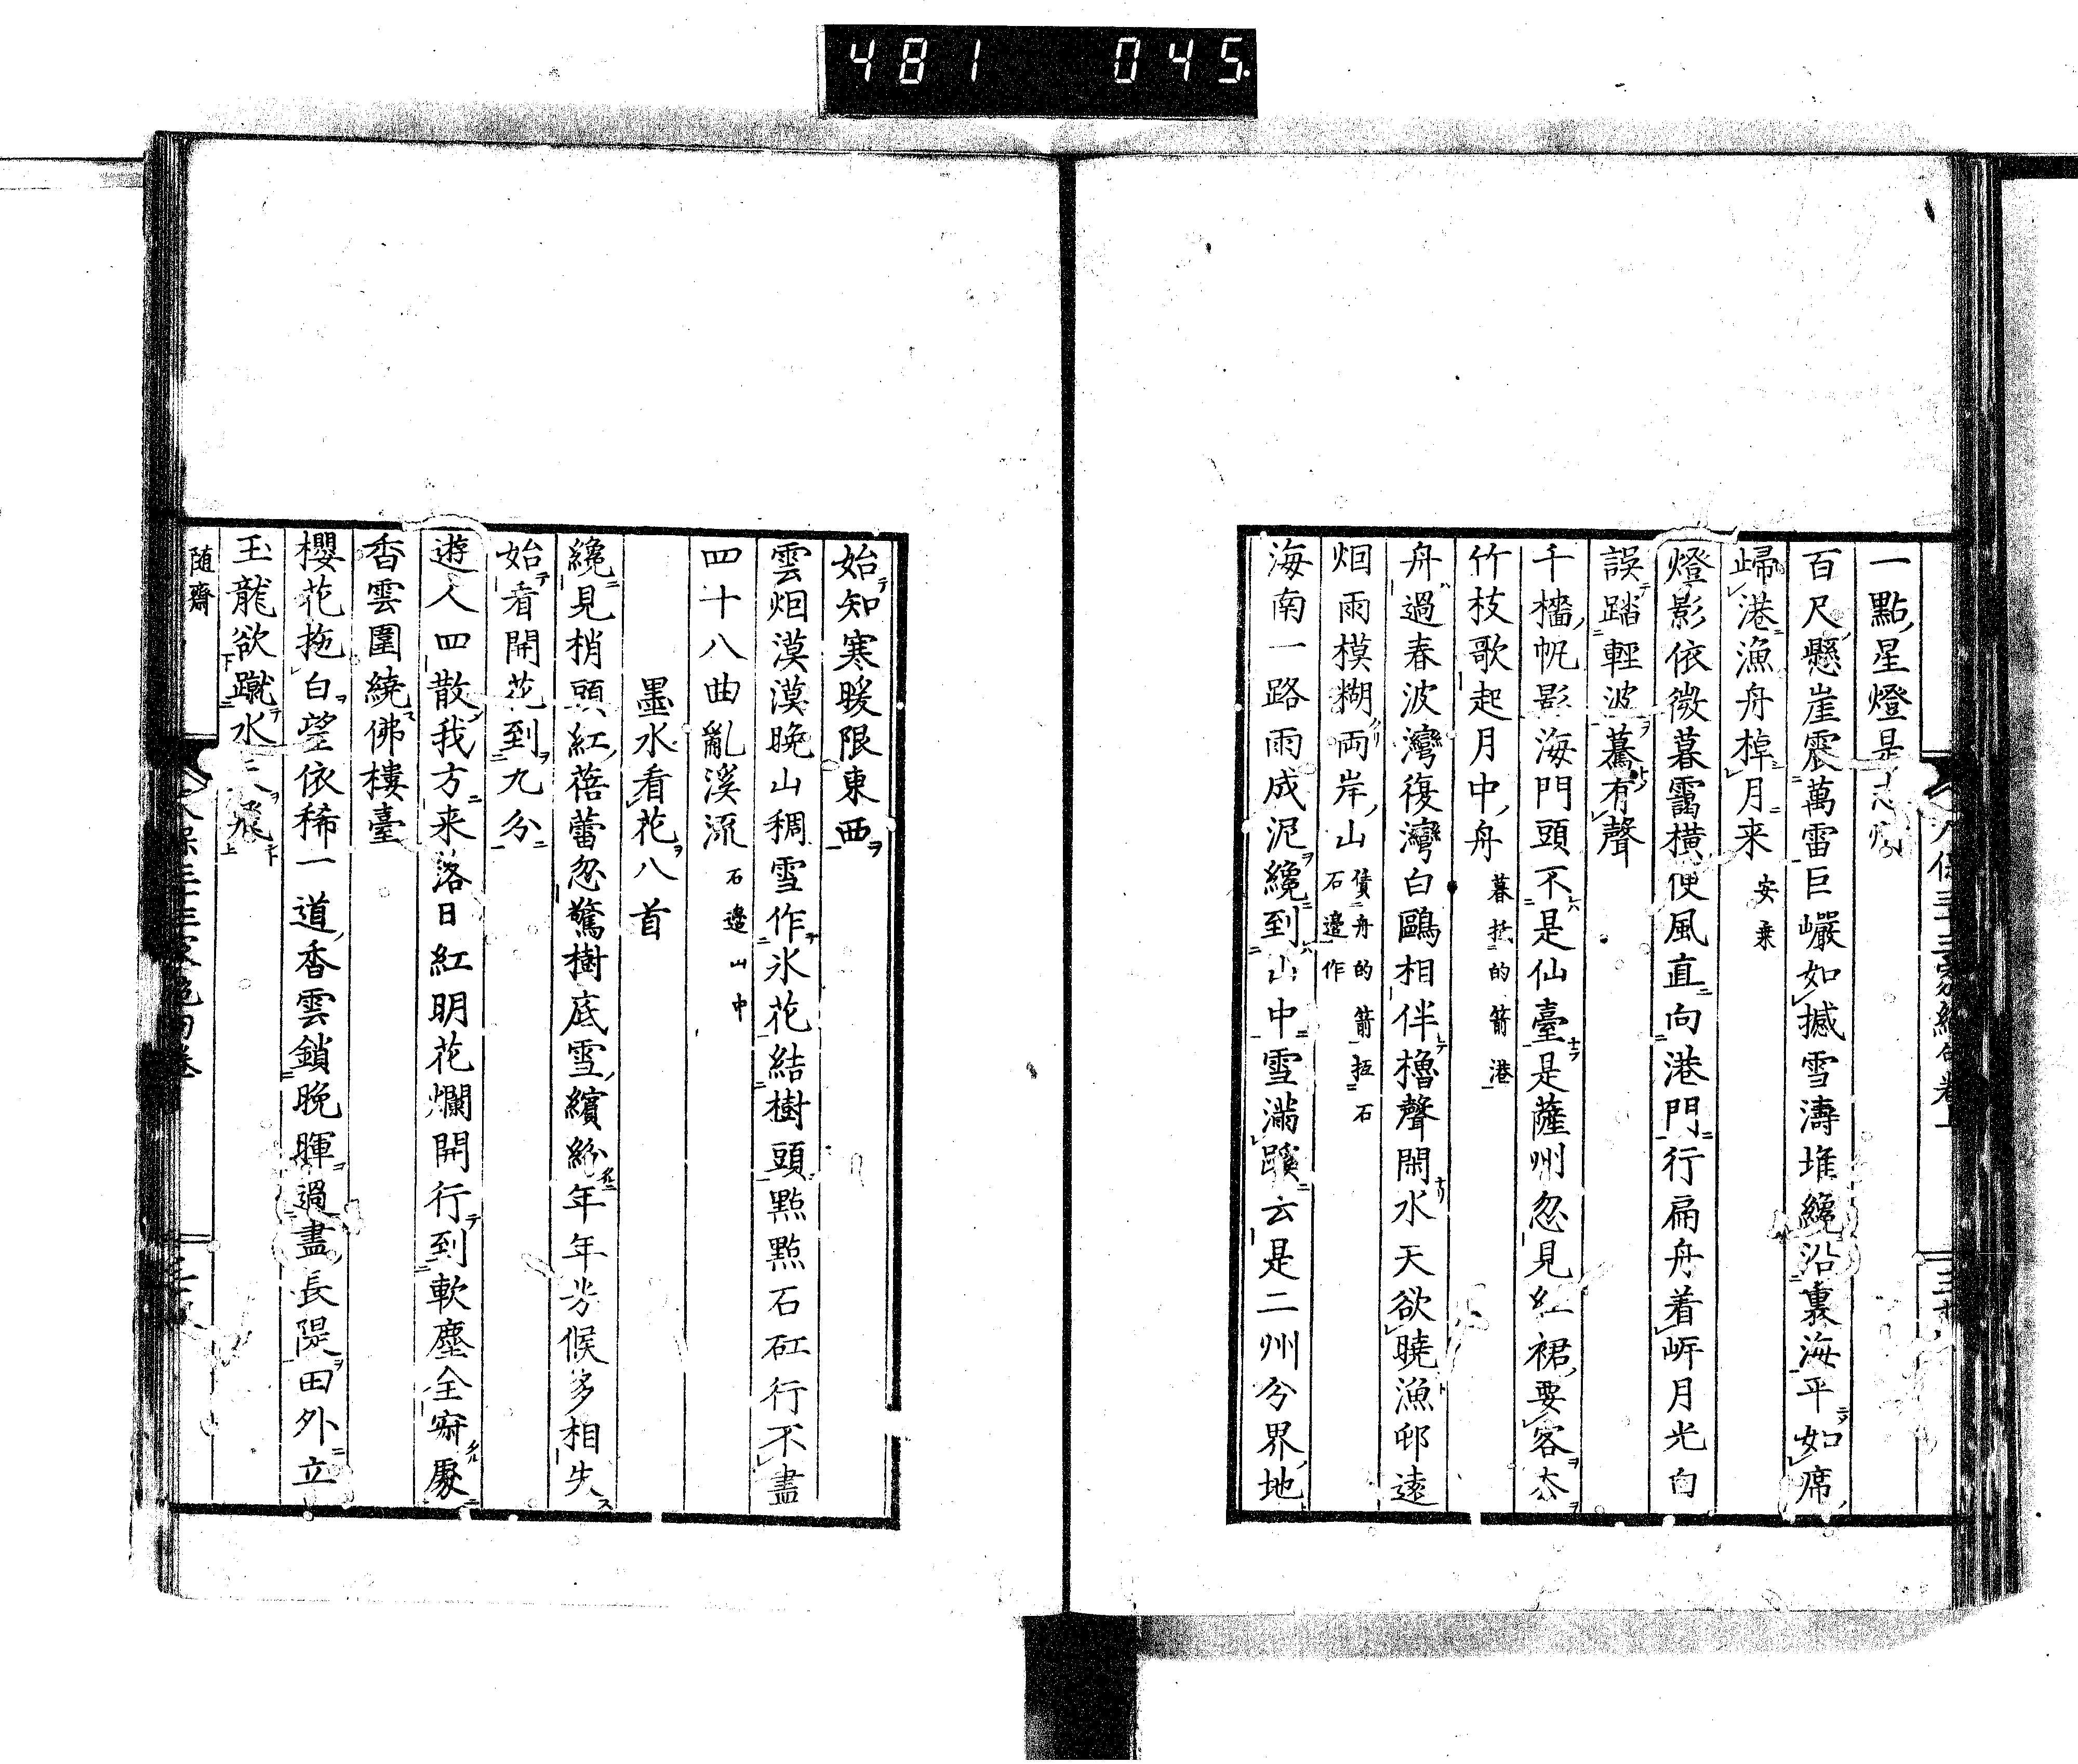 481 045
一點星燈是
百尺懸崖震萬雷巨巖如撼雪濤堆纔沿裏海平如席
歸港漁舟棹月来 安乗
燈影依微暮靄横便風直向港門行扁舟着岍月光白
誤踏輕波驀有聲
千檣帆影海門頭不是仙臺是薩州忽見紅裙要客态
竹枝歌起月中舟 暮抵的箭港
舟過春波灣復灣白鷗相伴櫓聲閑水天欲曉漁邨遠
烟雨模糊両岸山 僦舟的箭抵石
石邉作
海南一路雨成泥纔到山中雪滿蹊云是二州分界地
始知寒暖限東西
雲烟漠漠晩山稠雪作氷花結樹頭點點石矼行不盡
四十八曲亂溪流 石邉山中
墨水看花八首
纔見梢頭紅蓓蕾忽驚樹底雪繽紛年年芳候多相失
始看開花到九分
遊人四散我方来落日紅明花爛開行到軟塵全寂處
香雲圍繞佛樓臺
櫻花拖白望依稀一道香雲鎖晩暉過盡長隄田外立
玉龍欲蹴水 飛
随齋